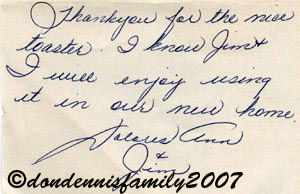 Thankyou for the nice
toaster. I know Jim &
I will enjoy using
it in our new home.
Dolores Ann
&
Jim
©dondennisfamily2007